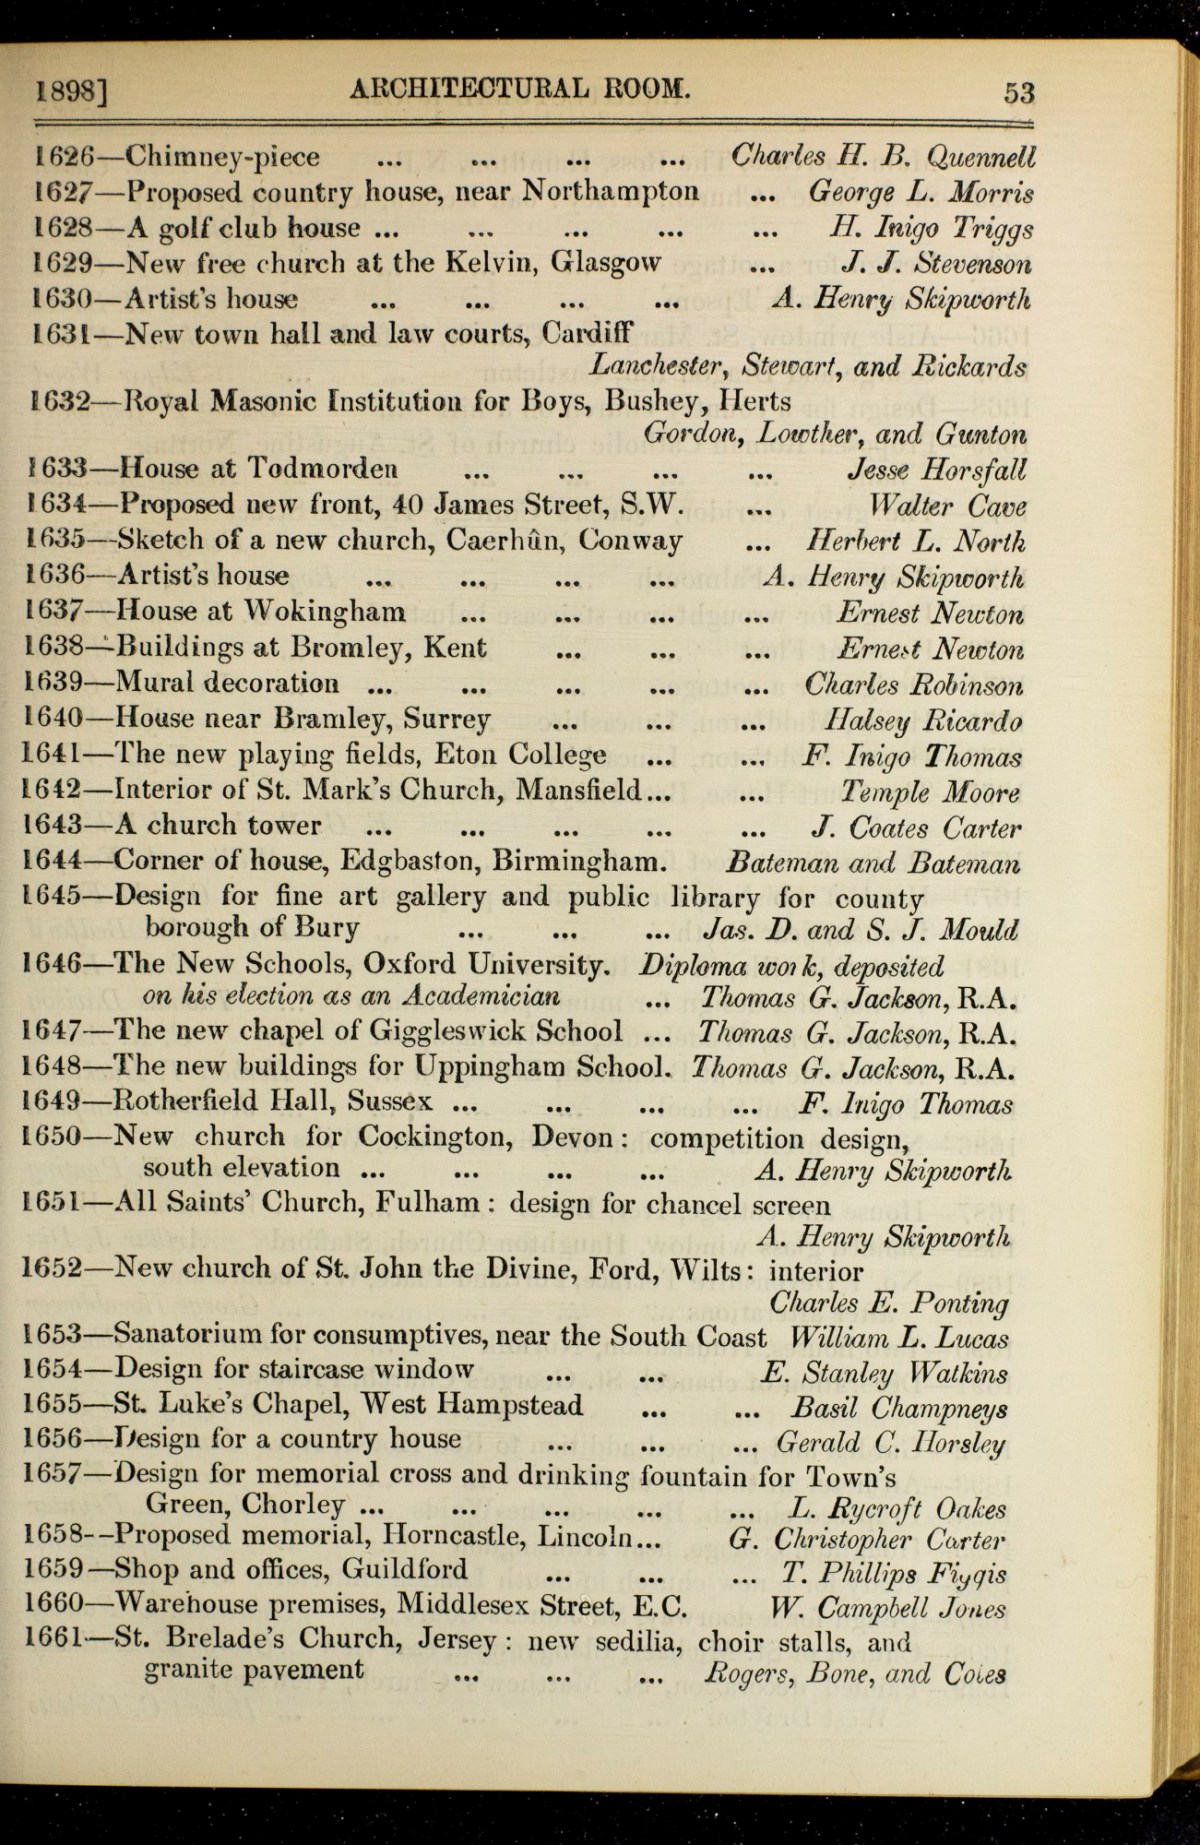 1898] ARCHITECTURAL ROOM. 53
1626—Chimney-piece ... ... ... ... Charles H. B. Quennell
1627—Proposed country house, near Northampton ... George L. Morris
1628—A golf club house ... ... ... ... ... H. Inigo Triggs
1629—New free church at the Kelvin, Glasgow ... J. J. Stevenson
1630—Artist's house ... ... ... ... A. Henry Skipworth
1631—New town hall and law courts, Cardiff
Lanchester, Stewart, and Rickards
1632—Royal Masonic Institution for Boys, Bushey, Herts
Gordon, Lowther, and Gunton
1633—House at Todmorden ... ... ... ... Jesse Horsfall
1634—Proposed new front, 40 James Street, S.W. ... Walter Cave
1635—Sketch of a new church, Caerhûn, Conway ... Herbert L. North
1636—Artist's house ... ... ... ... A. Henry Skipworth
1637—House at Wokingham ... ... ... ... Ernest Newton
1638—Buildings at Bromley, Kent ... ... ... Ernest Newton
1639—Mural decoration ... ... ... ... ... Charles Robinson
1640—House near Bramley, Surrey ... ... ... Halsey Ricardo
1641—The new playing fields, Eton College ... ... F. Inigo Thomas
1642—Interior of St. Mark's Church, Mansfield... ... Temple Moore
1643—A church tower ... ... ... ... ... J. Coates Carter
1644—Corner of house, Edgbaston, Birmingham. Bateman and Bateman
1645—Design for fine art gallery and public library for county
borough of Bury ... ... ... Jas. D. and S. J. Mould
1646—The New Schools, Oxford University. Diploma work, deposited
on his election as an Academician ... Thomas G. Jackson, R.A.
1647—The new chapel of Giggleswick School ... Thomas G. Jackson, R.A.
1648—The new buildings for Uppingham School. Thomas G. Jackson, R.A.
1649—Rotherfield Hall, Sussex ... ... ... ... F. Inigo Thomas
1650—New church for Cockington, Devon: competition design,
south elevation ... ... ... ... A. Henry Skipworth
1651—All Saints' Church, Fulham: design for chancel screen
A. Henry Skipworth
1652—New church of St. John the Divine, Ford, Wilts: interior
Charles E. Ponting
1653—Sanatorium for consumptives, near the South Coast William L. Lucas
1654—Design for staircase window ... ... E. Stanley Watkins
1655—St. Luke's Chapel, West Hampstead ... ... Basil Champneys
1656—Design for a country house ... ... ... Gerald C. Horsley
1657—Design for memorial cross and drinking fountain for Town's
Green, Chorley ... ... ... ... ... L. Rycroft Oakes
1658--Proposed memorial, Horncastle, Lincoln... G. Christopher Carter
1659—Shop and offices, Guildford ... ... ... T. Phillips Figgis
1660—Warehouse premises, Middlesex Street, E.C. W. Campbell Jones
1661—St. Brelade's Church, Jersey: new sedilia, choir stalls, and
granite pavement ... ... ... Rogers, Bone, and Coles